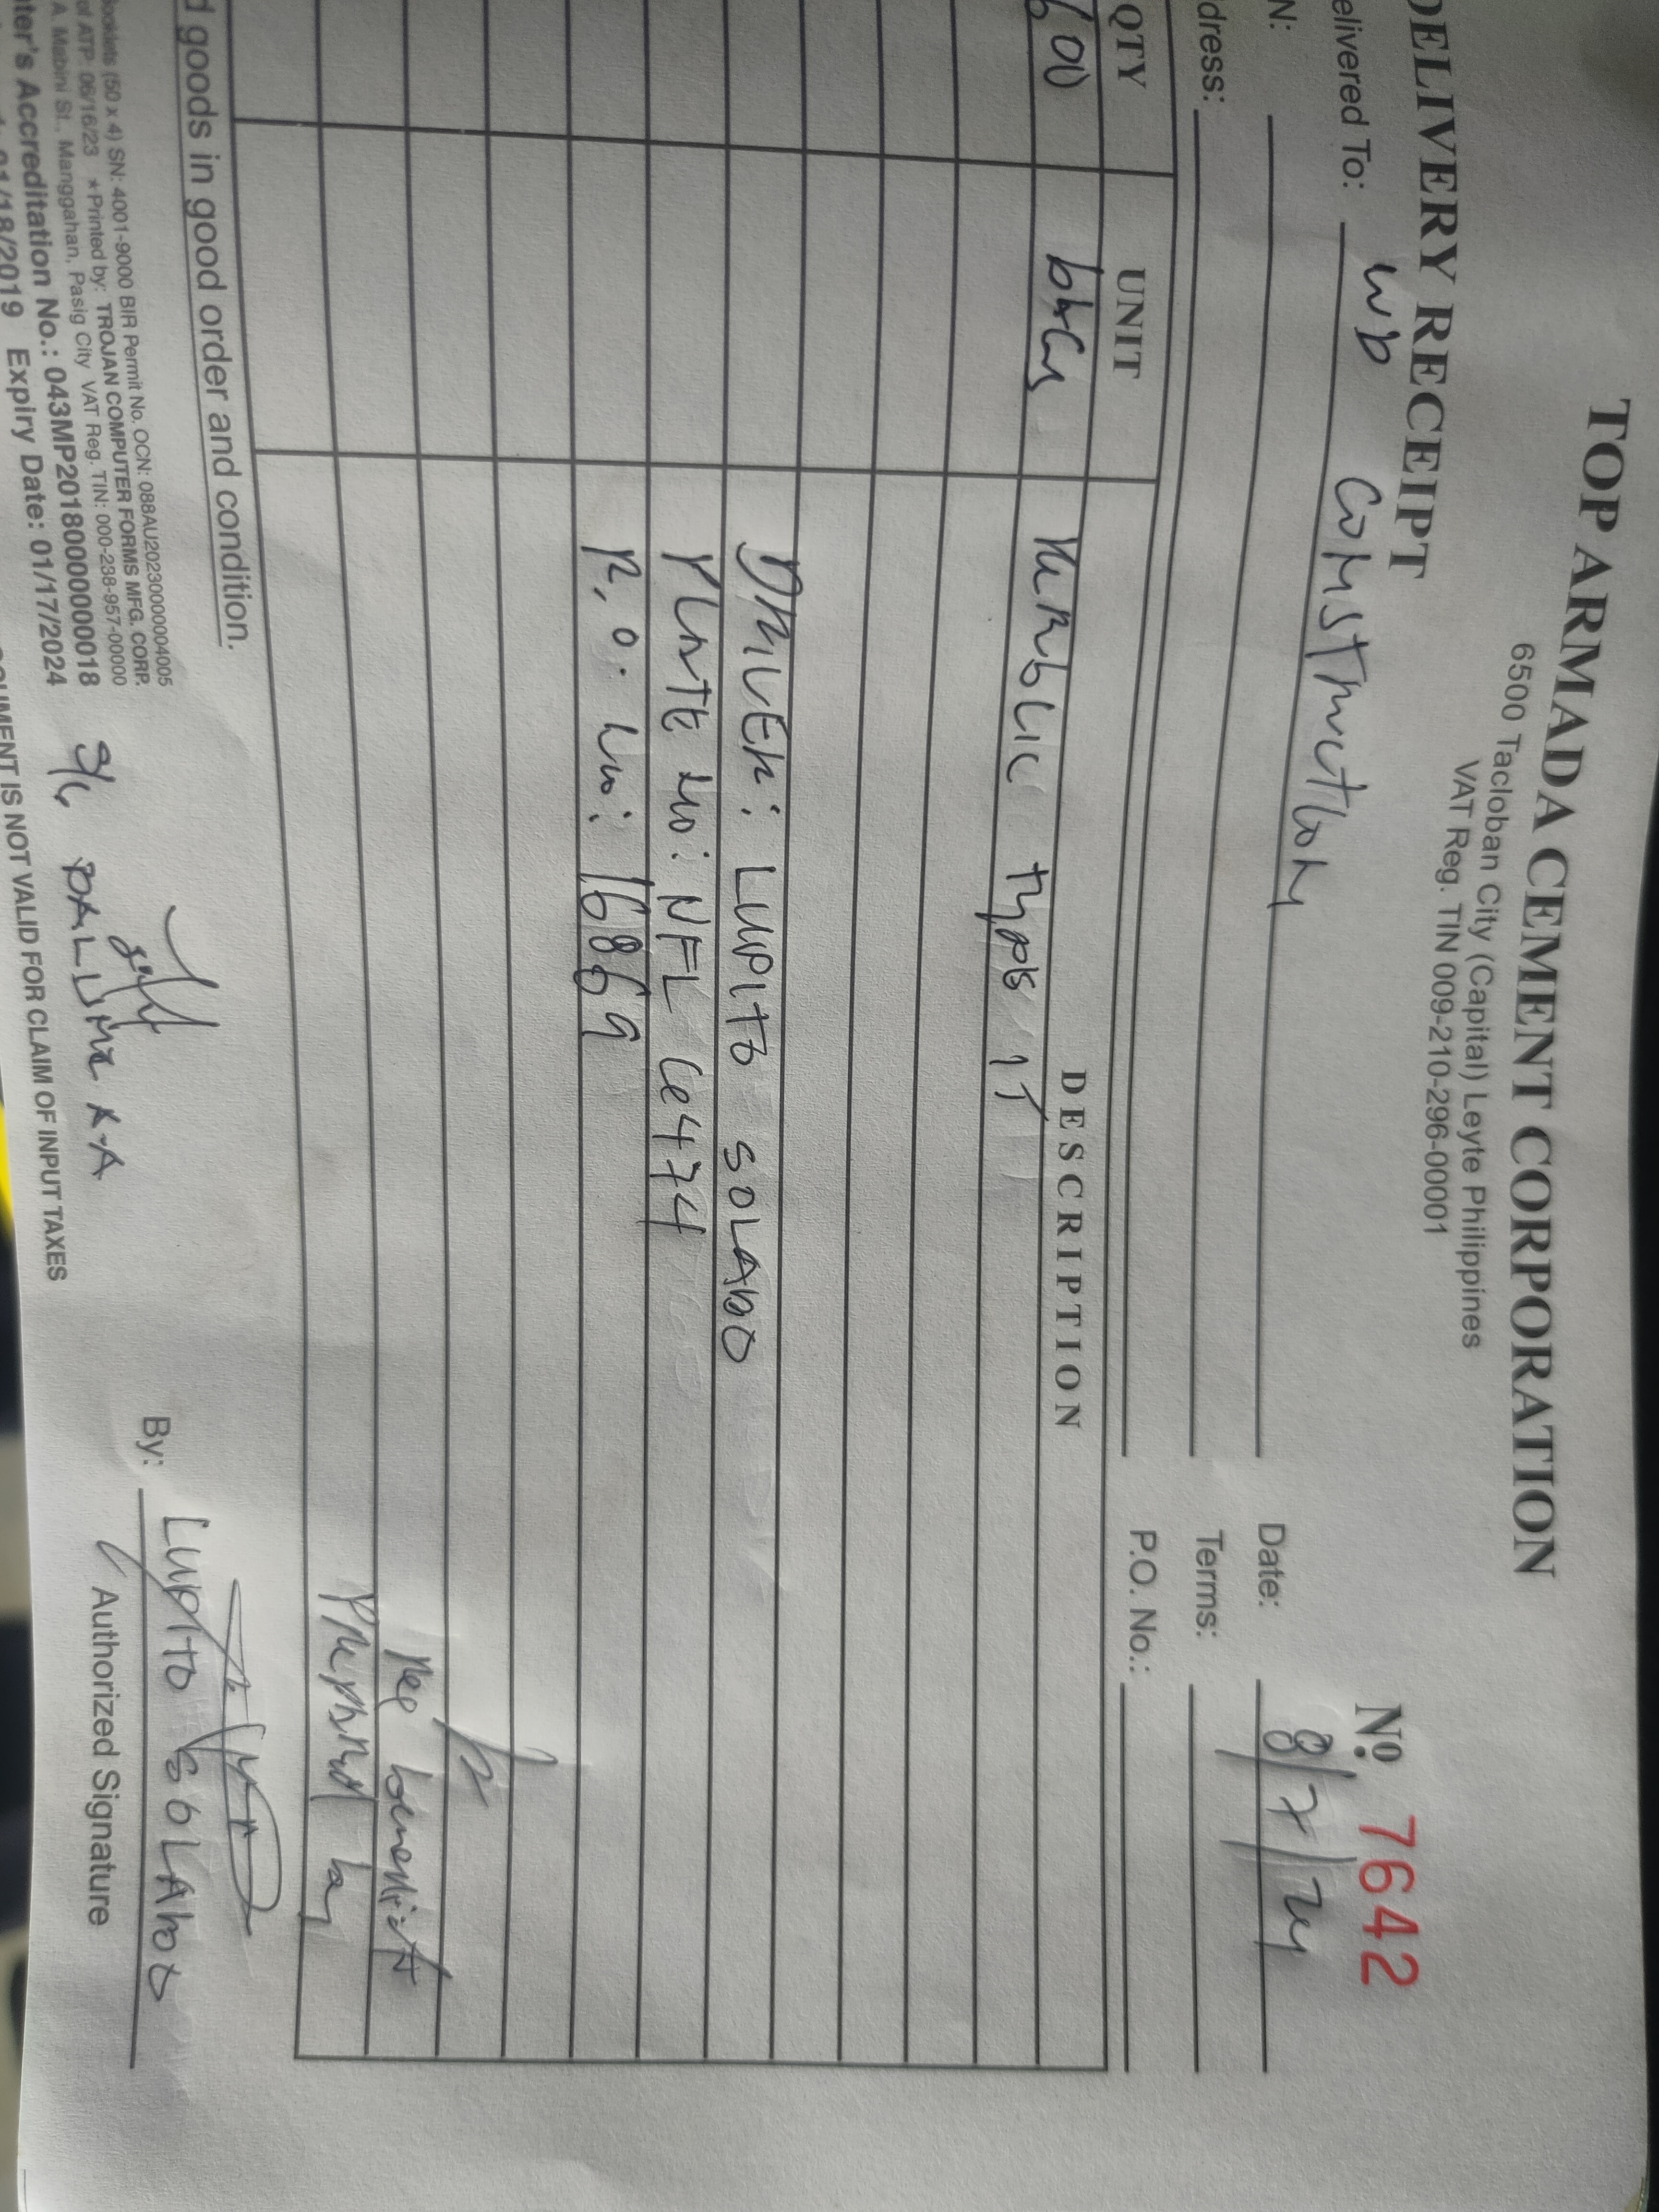 TOP ARMADA CEMENT CORPORATION
6500 Tacloban City (Capital) Leyte Philippines
VAT Reg. TIN 009-210-296-00001
DELIVERY RECEIPT
Nº 7642
elivered To: WB Construction
Date: 8/7/24
N:
Terms:
dress:
P.O. No.:
QTY UNIT DESCRIPTION
00 bags type 1T
DRIVER: LUPITO SOLABO
PLATE NO: NFL 6474
P.O. No: 16869
Prepared by
d goods in good order and condition.
By: LUPITO SOLABO
Authorized Signature
ooklets (50 x 4) SN: 4001-9000 BIR Permit No. OCN: 088AU20230000004005
of ATP: 06/16/23 *Printed by: TROJAN COMPUTER FORMS MFG. CORP.
A. Mabini St., Manggahan, Pasig City VAT Reg. TIN: 000-238-957-00000
ter's Accreditation No.: 043MP20180000000018
01/18/2019 Expiry Date: 01/17/2024
CUMENT IS NOT VALID FOR CLAIM OF INPUT TAXES